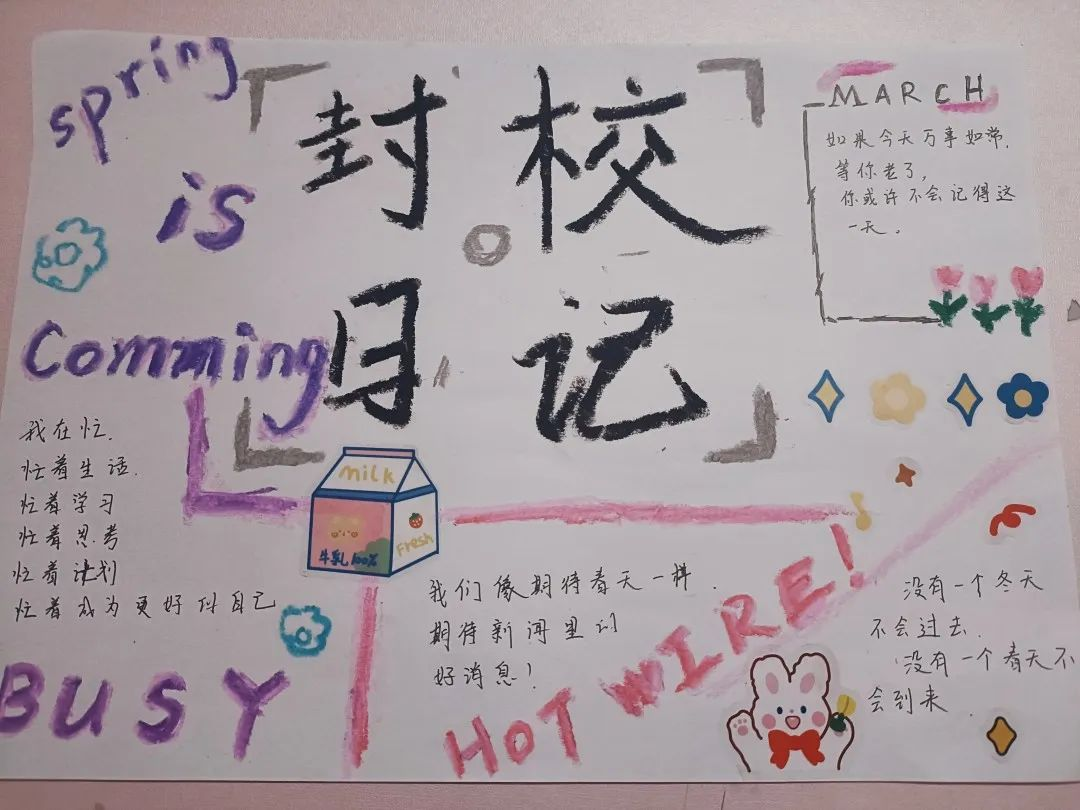 spring
is
Comming
封校
日记
MARCH
如果今天万事如常,
等你老了,
你或许不会记得这
一天。
我在忙.
忙着生活.
忙着学习
忙着思考
忙着计划
忙着成为更好的自己
BUSY
milk
牛乳100%
Fresh
我们像期待春天一样.
期待新闻里的
好消息!
HOT WIRE!
没有一个冬天
不会过去.
没有一个春天不
会到来.